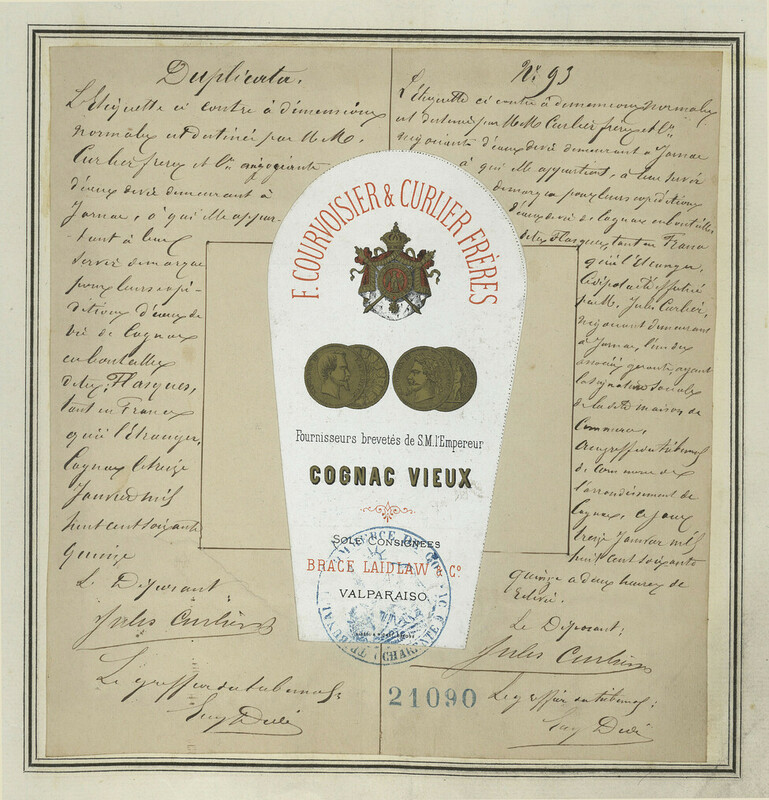 Duplicata.
L'étiquette ci contre à dimensions
normales est destinée par M.M.
Curlier frères et Cie négociants
d'eaux de vie demeurant à
Jarnac, à qui elle appar-
tient à leur
servir de marque
pour leurs expé-
ditions d'eaux de
vie de Cognac
en bouteilles
dites Flasques,
tant en France
qu'à l'étranger,
Cognac le treize
Janvier mil
huit cent soixante
quinze
Le Déposant
Jules Curlier
Le greffier du tribunal:
F. COURVOISIER & CURLIER FRÈRES
Fournisseurs brevetés de S.M. l'Empereur
COGNAC VIEUX
SOLE CONSIGNEES
BRACE LAIDLAW & Co.
VALPARAISO.
TRIBUNAL
CHARENTE
21090
No 93
L'étiquette ci contre à dimensions normales
est destinée par M.M. Curlier frères et Cie
négociants d'eaux de vie demeurant à Jarnac
à qui elle appartient, à leur servir
de marque pour leurs expéditions
d'eaux de vie de Cognac en bouteilles
dites Flasques, tant en France
qu'à l'étranger,
Le dépôt a été effectué
par M. Jules Curlier,
négociant demeurant
à Jarnac, l'un des
associés gérants, ayant
la signature sociale
de la dite maison de
Commerce,
au greffe du tribunal
de Commerce de
l'arrondissement de
Cognac, ce jour
treize Janvier mil
huit cent soixante
quinze à deux heures de
relevée.
Le Déposant:
Jules Curlier
Le greffier du tribunal: